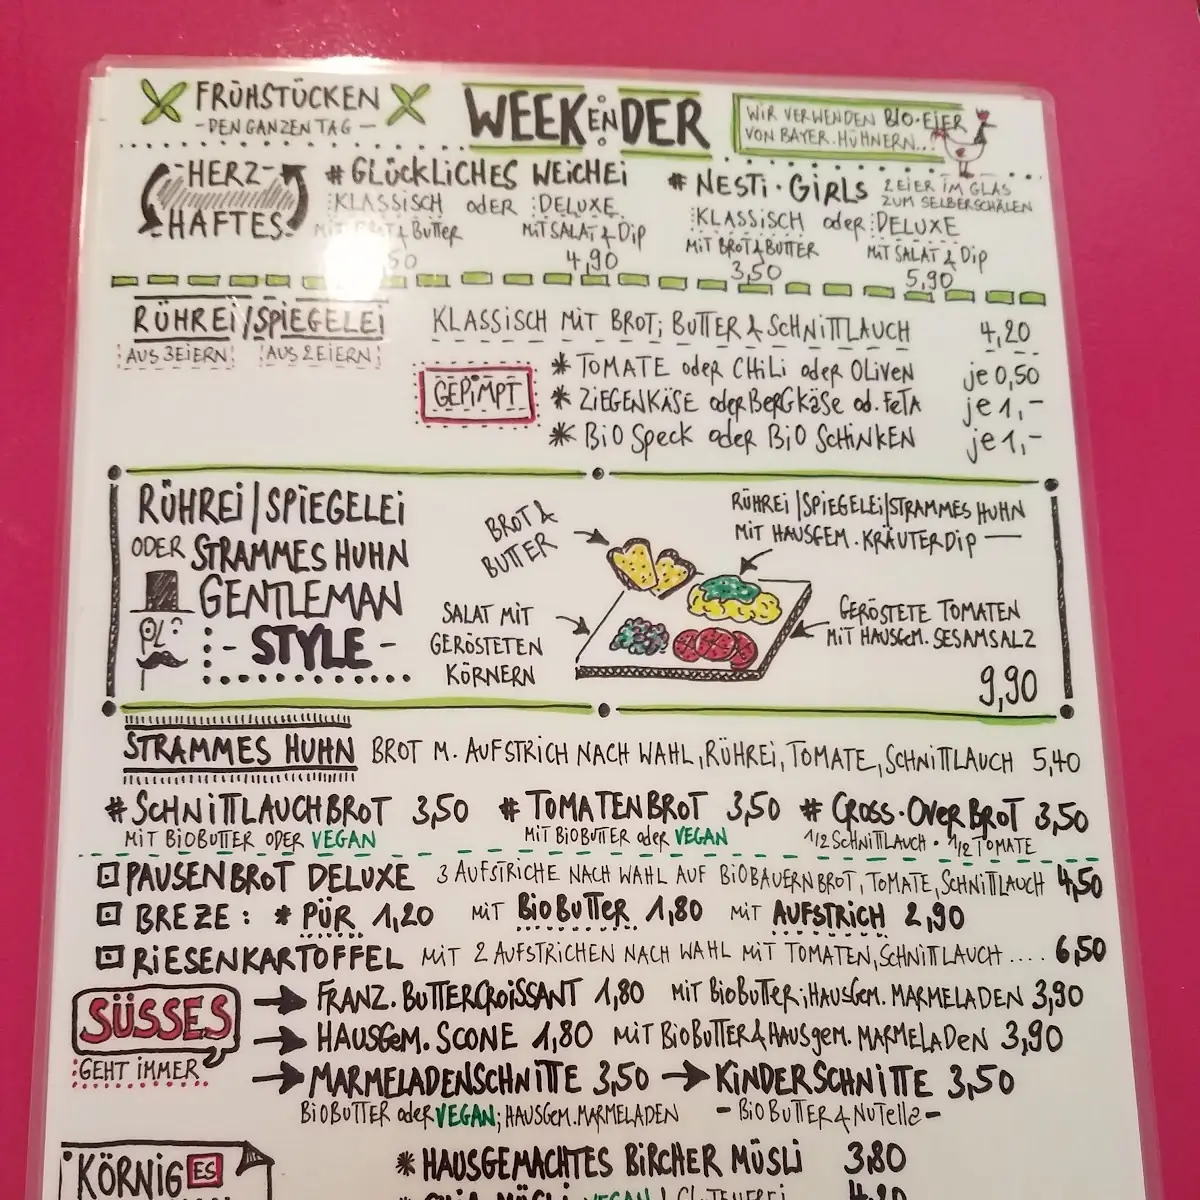 FRÜHSTÜCKEN
- DEN GANZEN TAG -
WEEKENDER
WIR VERWENDEN BIO-EIER
VON BAYER. HÜHNERN..
-HERZ-
HAFTES
# GLÜCKLICHES WEICHEI
KLASSISCH oder DELUXE
MIT BROT & BUTTER MIT SALAT & DIP
50 4,90
# NESTI·GIRLS 2 EIER IM GLAS
ZUM SELBERSCHÄLEN
KLASSISCH oder DELUXE
MIT BROT & BUTTER MIT SALAT & DIP
3,50 5,90
RÜHREI/SPIEGELEI
AUS 3 EIERN AUS 2 EIERN
KLASSISCH MIT BROT; BUTTER & SCHNITTLAUCH 4,20
GEPIMPT
* TOMATE oder CHILI oder OLIVEN je 0,50
* ZIEGENKÄSE oder BERGKÄSE od. FETA je 1,-
* BIO SPECK oder BIO SCHINKEN je 1,-
RÜHREI/SPIEGELEI
ODER STRAMMES HUHN
GENTLEMAN
- STYLE -
BROT &
BUTTER
SALAT MIT
GERÖSTETEN
KÖRNERN
RÜHREI/SPIEGELEI/STRAMMES HUHN
MIT HAUSGEM. KRÄUTERDIP
GERÖSTETE TOMATEN
MIT HAUSGEM. SESAMSALZ
9,90
STRAMMES HUHN BROT M. AUFSTRICH NACH WAHL, RÜHREI, TOMATE, SCHNITTLAUCH 5,40
# SCHNITTLAUCHBROT 3,50 # TOMATENBROT 3,50 # CROSS-OVER BROT 3,50
MIT BIOBUTTER ODER VEGAN MIT BIOBUTTER oder VEGAN 1/2 SCHNITTLAUCH · 1/2 TOMATE
PAUSENBROT DELUXE 3 AUFSTRICHE NACH WAHL AUF BIOBAUERNBROT, TOMATE, SCHNITTLAUCH 4,50
BREZE: * PÜR 1,20 MIT BIOBUTTER 1,80 MIT AUFSTRICH 2,90
RIESENKARTOFFEL MIT 2 AUFSTRICHEN NACH WAHL MIT TOMATEN, SCHNITTLAUCH .... 6,50
SÜSSES
GEHT IMMER
→ FRANZ. BUTTERCROISSANT 1,80 MIT BIOBUTTER; HAUSGEM. MARMELADEN 3,90
→ HAUSGEM. SCONE 1,80 MIT BIOBUTTER & HAUSGEM. MARMELADEN 3,90
→ MARMELADENSCHNITTE 3,50 → KINDERSCHNITTE 3,50
BIOBUTTER oder VEGAN; HAUSGEM. MARMELADEN - BIOBUTTER & NUTELLA -
KÖRNIGES
* HAUSGEMACHTES BIRCHER MÜSLI 3,80